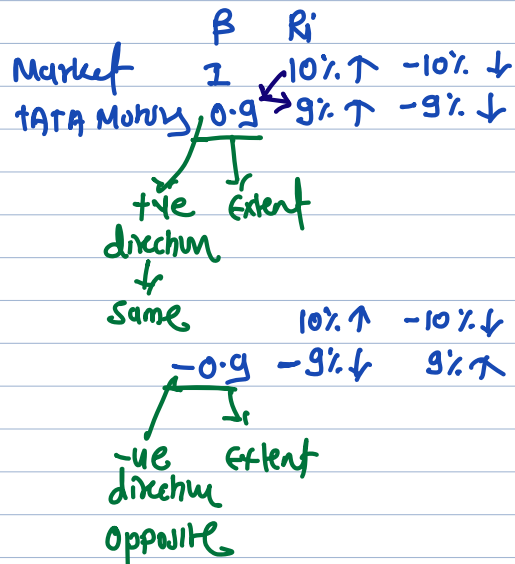 β Ri
Market 1 10% ↑ -10% ↓
TATA Motors 0.9 9% ↑ -9% ↓
+ve Extent
direction
↓
same
10% ↑ -10% ↓
-0.9 -9% ↓ 9% ↑
-ve Extent
direction
opposite